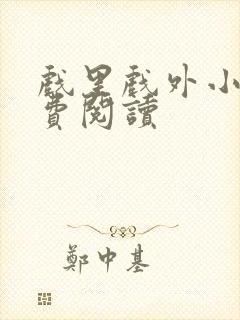 戲里戲外小
費閱讀
鄭中基